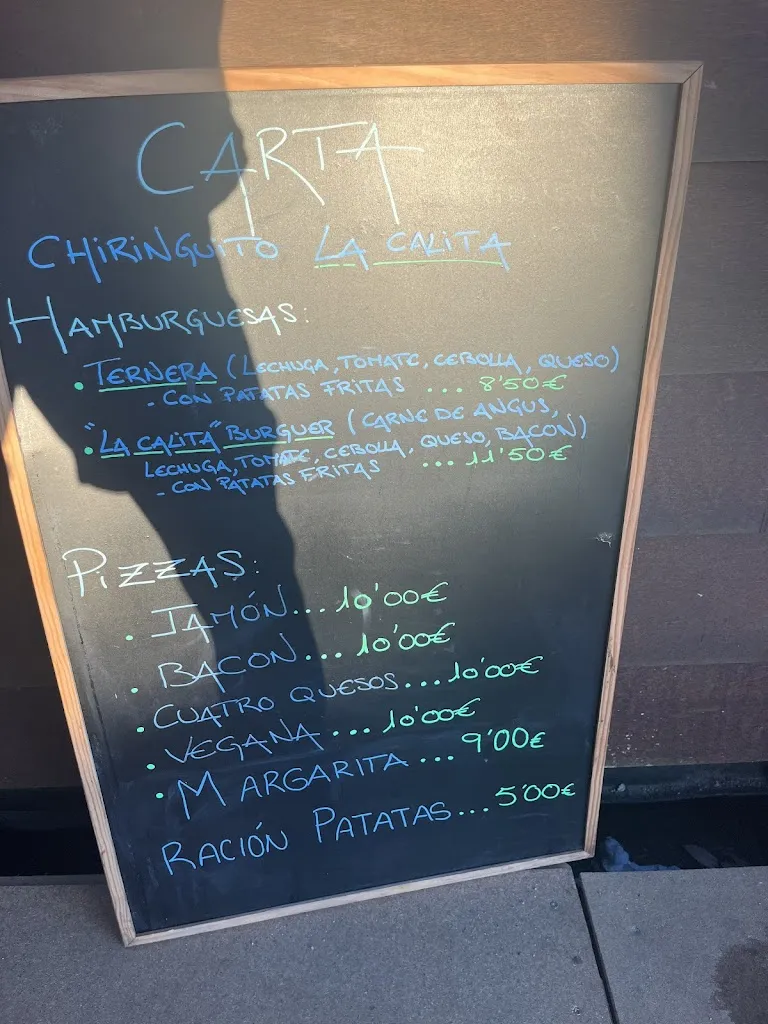 CARTA
CHIRINGUITO LA CALITA
HAMBURGUESAS:
• TERNERA (LECHUGA, TOMATE, CEBOLLA, QUESO)
- CON PATATAS FRITAS ... 8'50€
• "LA CALITA" BURGUER (CARNE DE ANGUS,
LECHUGA, TOMATE, CEBOLLA, QUESO, BACON)
- CON PATATAS FRITAS ... 11'50€
PIZZAS:
• JAMÓN... 10'00€
• BACON... 10'00€
• CUATRO QUESOS... 10'00€
• VEGANA... 10'00€
• MARGARITA... 9'00€
RACIÓN PATATAS... 5'00€